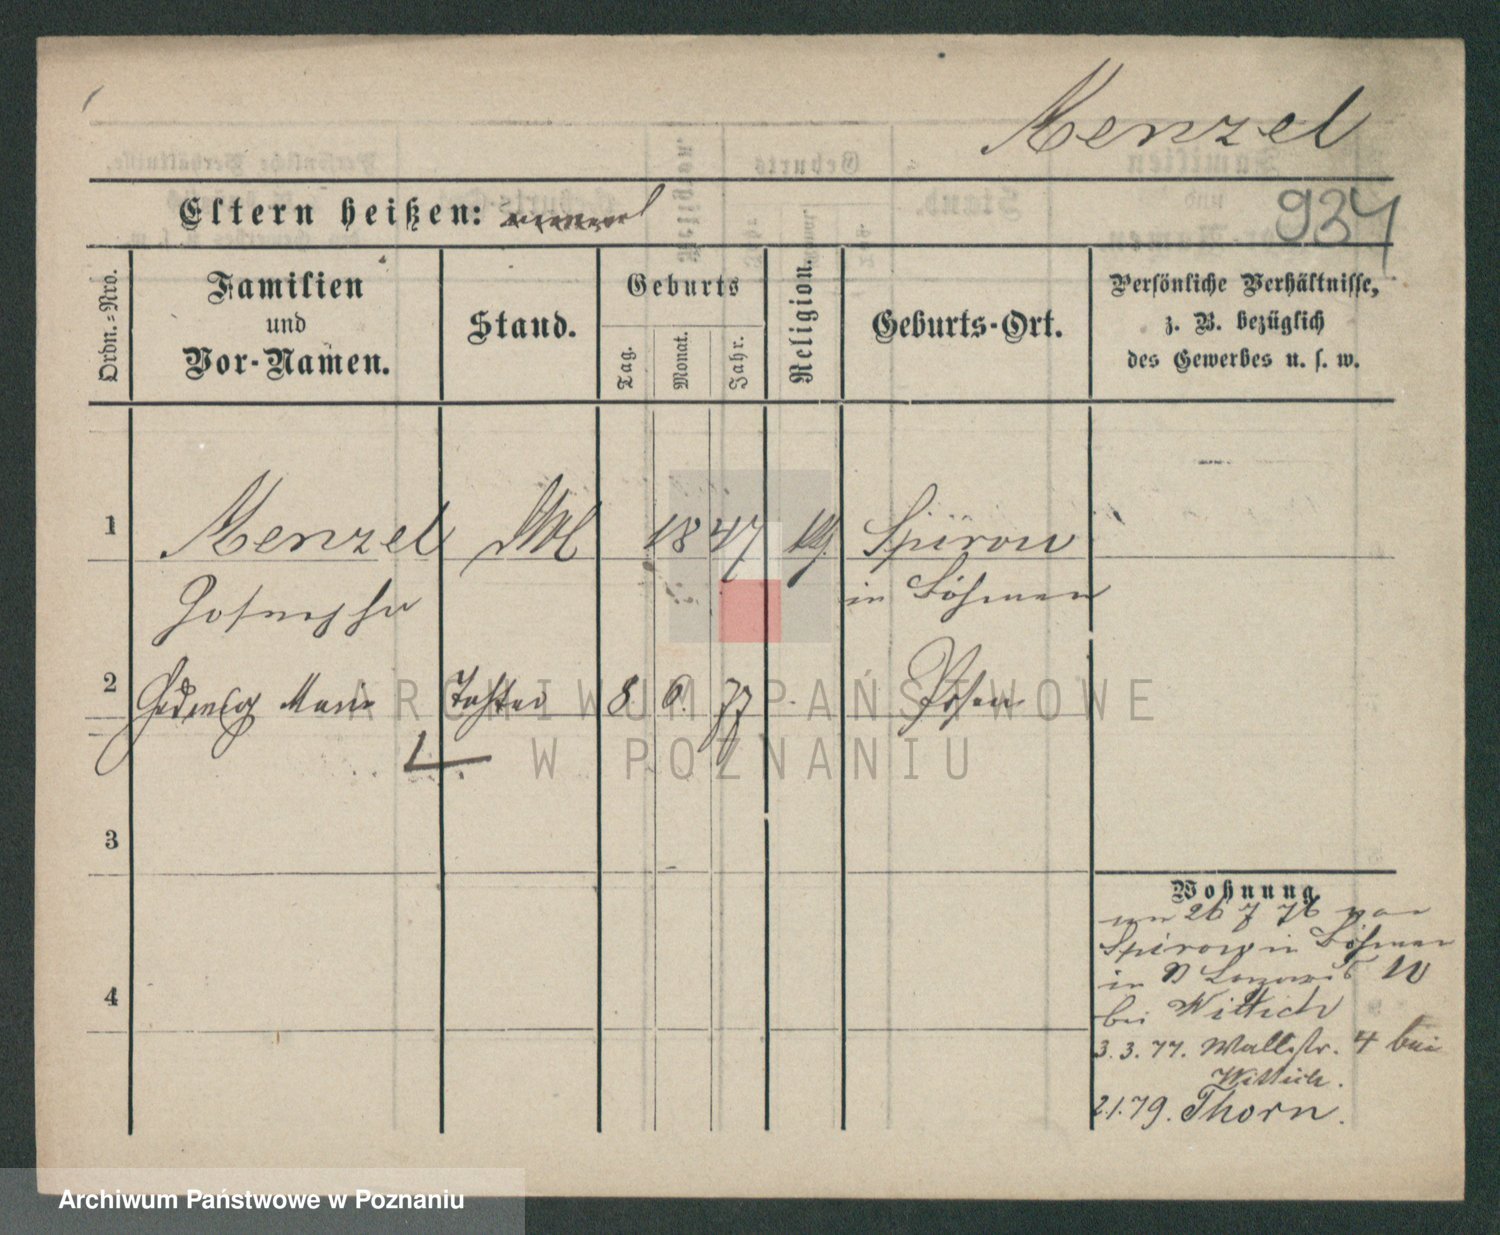 Menzel
934
Eltern heißen:
Ordn.-Nro.
Familien
und
Vor-Namen.
Stand.
Geburts
Tag.
Monat.
Jahr.
Religion.
Geburts-Ort.
Persönliche Verhältnisse,
z. B. bezüglich
des Gewerbes u. s. w.
1
Menzel
1847
Spirow
Josepha
in Böhmen
2
Hedwig Marie
Tochter
8.
6.
77
Posen
ARCHIWUM PAŃSTWOWE
W POZNANIU
3
Wohnung
26 7 76 von
Spirow in Böhmen
in
bei Wittich
4
3.3.77. Wallstr. 4 bei
Wittich.
2.1.79. Thorn.
Archiwum Państwowe w Poznaniu